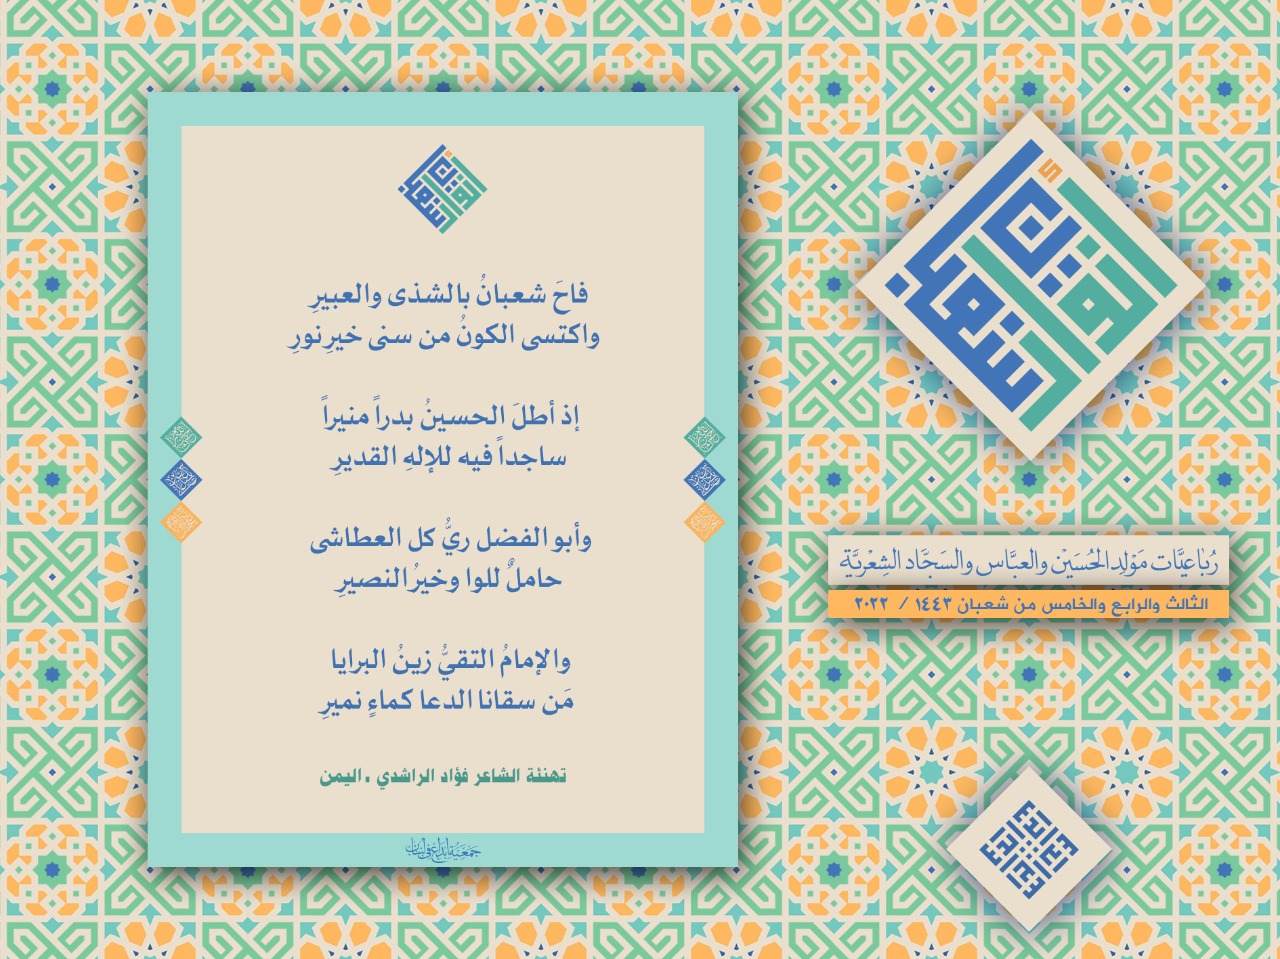 فاحَ شعبانُ بالشذى والعبيرِ
واكتسى الكونُ من سنى خيرِ نورِ
إذ أطلَ الحسينُ بدراً منيراً
ساجداً فيه للإلهِ القديرِ
وأبو الفضل ريُّ كل العطاشى
حاملٌ للوا وخيرُ النصيرِ
والإمامُ التقيُّ زينُ البرايا
مَن سقانا الدعا كماءٍ نميرِ
تهنئة الشاعر فؤاد الراشدي . اليمن
جمعية إبداع في لبنان
رُبَاعيَّات مَوْلِد الحُسَيْن والعبَّاس والسَجَّاد الشِعْريَّة
الثالث والرابع والخامس من شعبان ١٤٤٣ / ٢٠٢٢